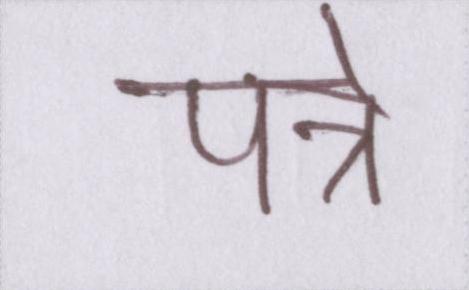 पत्रे